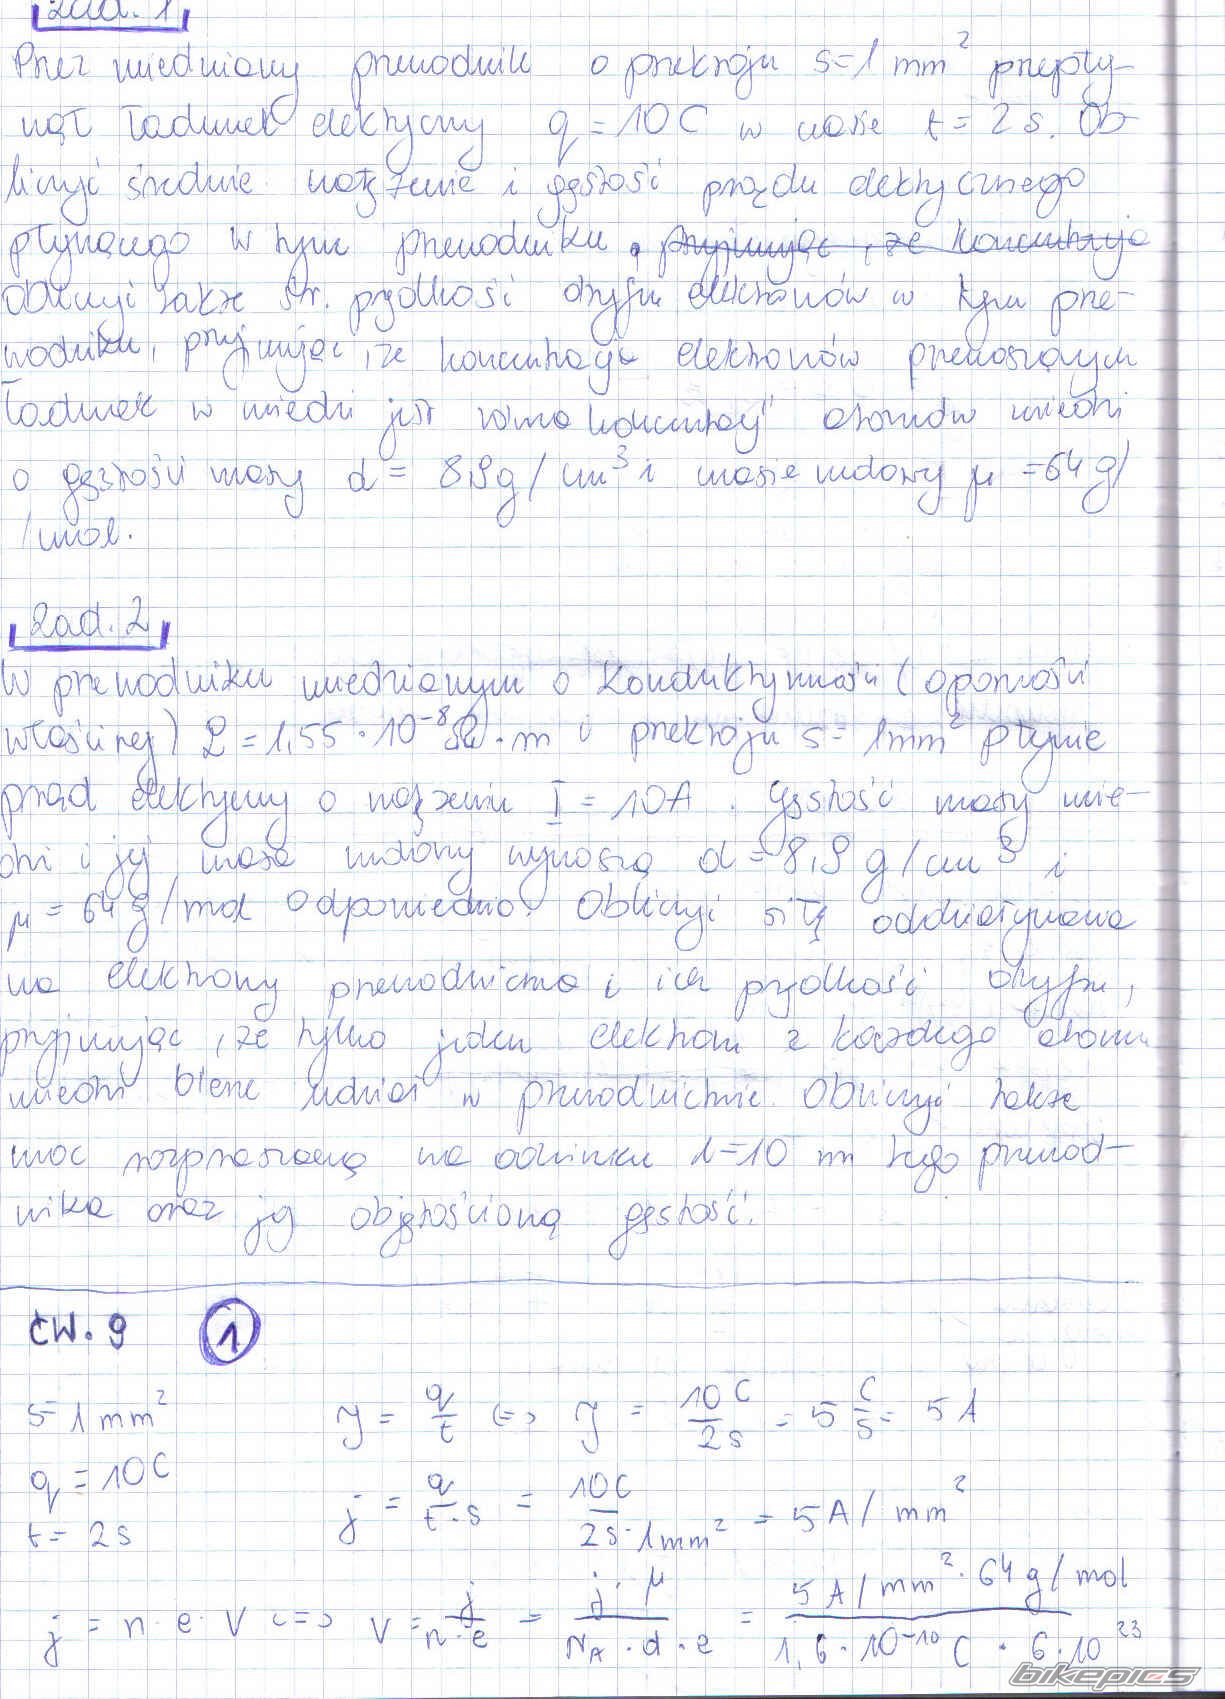 Zad. 1
Przez miedziany przewodnik o przekroju s=1 mm² przepły-
nął ładunek elektryczny q = 10 C w czasie t = 2 s. Ob-
liczyć średnie natężenie i gęstość prądu elektrycznego
płynącego w tym przewodniku, przyjmując, że koncentracja
obliczyć także śr. prędkość dryfu elektronów w tym prze-
wodniku, przyjmując, że koncentracja elektronów przenoszącym
ładunek w miedzi jest równa koncentracji atomów miedzi
o gęstości masy d = 8,9 g/cm³ i masie molowej μ = 64 g/
/mol.
Zad. 2
W przewodniku miedzianym o konduktywności (oporności
właściwej) ρ = 1,55 · 10⁻⁸ Ω · m i przekroju s = 1mm² płynie
prąd elektryczny o natężeniu I = 10A. Gęstość masy mie-
dzi i jej masa molowy wynoszą d = 8,9 g/cm³ i
μ = 64 g/mol odpowiednio. Obliczyć siłę oddziaływania
na elektrony przewodnictwa i ich prędkość dryfu,
przyjmując, że tylko jeden elektron z każdego atomu
miedzi bierze udział w przewodnictwie. Obliczyć także
moc rozpraszaną na odcinku l=10 m tego przewod-
nika oraz jej objętościową gęstość.
ĆW. 9 1
s=1 mm² J = q/t <=> J = 10C/2s = 5 C/s = 5 A
q = 10C j = q/t·s = 10C/2s·1mm² = 5 A/mm²
t = 2s
j = n · e · V <=> V = j/n·e = j·μ/N_A·d·e = 5 A/mm²·64 g/mol/1,6·10⁻¹⁰ C · 6·10²³
bikepics